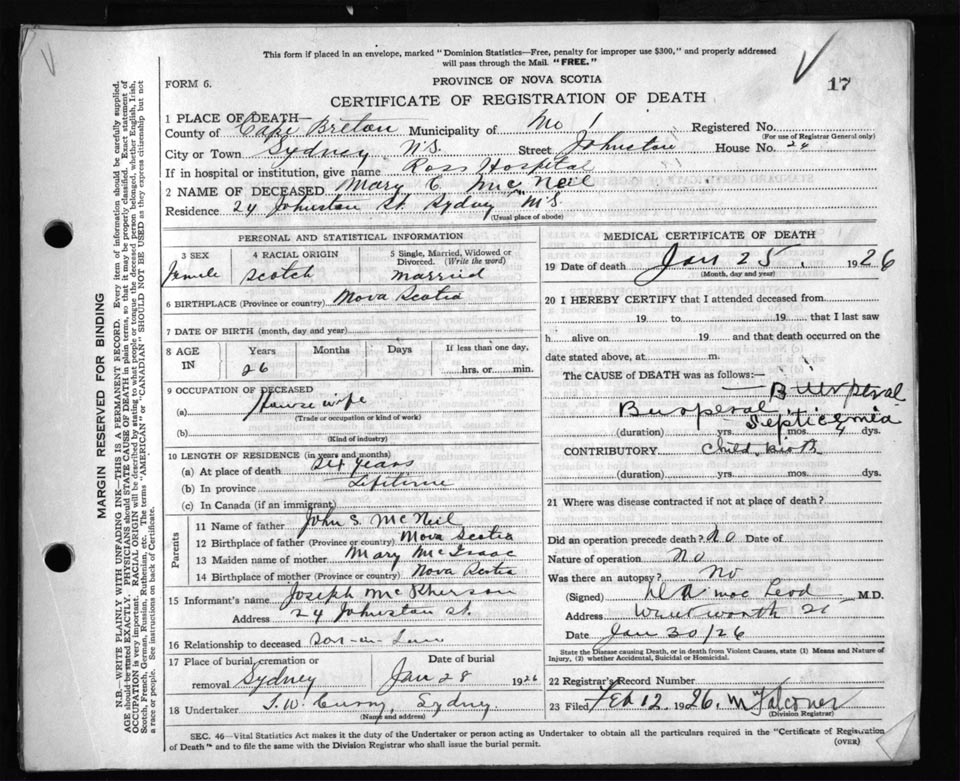 This form if placed in an envelope, marked "Dominion Statistics—Free, penalty for improper use $300," and properly addressed
will pass through the Mail. "FREE."
17
FORM 6.
PROVINCE OF NOVA SCOTIA
CERTIFICATE OF REGISTRATION OF DEATH
1 PLACE OF DEATH—
County of Cape Breton Municipality of No 1 Registered No.
(For use of Registrar General only)
City or Town Sydney N.S. Street Johnston House No. 24
If in hospital or institution, give name Ross Hospital
2 NAME OF DECEASED Mary C McNeil
Residence 24 Johnston St. Sydney N.S.
(Usual place of abode)
PERSONAL AND STATISTICAL INFORMATION
3 SEX 4 RACIAL ORIGIN 5 Single, Married, Widowed or Divorced. (Write the word)
Female Scotch Married
6 BIRTHPLACE (Province or country) Nova Scotia
7 DATE OF BIRTH (month, day and year)
8 AGE IN Years Months Days If less than one day,
26 hrs. or min.
9 OCCUPATION OF DECEASED
(a) Housewife
(Trade or occupation or kind of work)
(b)
(Kind of industry)
10 LENGTH OF RESIDENCE (in years and months)
(a) At place of death Six years
(b) In province Lifetime
(c) In Canada (if an immigrant)
Parents
11 Name of father John S. McNeil
12 Birthplace of father (Province or country) Nova Scotia
13 Maiden name of mother Mary McIsaac
14 Birthplace of mother (Province or country) Nova Scotia
15 Informant's name Joseph McPherson
Address 24 Johnston St.
16 Relationship to deceased Son-in-Law
17 Place of burial, cremation or removal Sydney Date of burial Jan 28 1926
18 Undertaker T. W. Curry, Sydney
(Name and address)
MEDICAL CERTIFICATE OF DEATH
19 Date of death Jan 25, 1926
(Month, day and year)
20 I HEREBY CERTIFY that I attended deceased from
19 to 19 that I last saw
h alive on 19 and that death occurred on the
date stated above, at m.
The CAUSE of DEATH was as follows:—
Buerperal
Burperal Septicemia
(duration) yrs. mos. dys.
CONTRIBUTORY Child birth
(duration) yrs. mos. dys.
21 Where was disease contracted if not at place of death?
Did an operation precede death? No Date of
Nature of operation No
Was there an autopsy? No
(Signed) Mac Leod M.D.
Address Wentworth St
Date Jan 30/26
State the Disease causing Death, or in death from Violent Causes, state (1) Means and Nature of
Injury, (2) whether Accidental, Suicidal or Homicidal.
22 Registrar's Record Number
23 Filed Feb 12 1926. McFalconer
(Division Registrar)
SEC. 46—Vital Statistics Act makes it the duty of the Undertaker or person acting as Undertaker to obtain all the particulars required in the "Certificate of Registration
of Death" and to file the same with the Division Registrar who shall issue the burial permit.
(OVER)
MARGIN RESERVED FOR BINDING
N.B.—WRITE PLAINLY WITH UNFADING INK—THIS IS A PERMANENT RECORD. Every item of information should be carefully supplied.
AGE should be stated EXACTLY. PHYSICIANS should STATE CAUSE OF DEATH in plain terms, so that it may be properly classified. Exact statement of
OCCUPATION is very important. RACIAL ORIGIN will be described by stating to what people or tongue the deceased person belonged, whether English, Irish,
Scotch, French, German, Russian, Ruthenian, etc. The terms "AMERICAN" or "CANADIAN" SHOULD NOT BE USED as they express citizenship but not
a race or people. See instructions on back of Certificate.